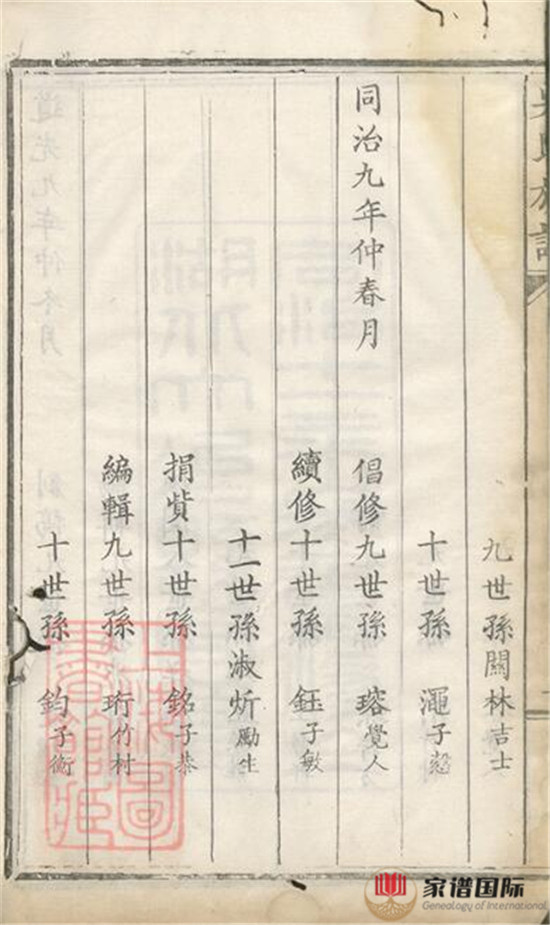 九世孫關林吉士
十世孫 澠子
同治九年仲春月 倡修九世孫 瑢覺人
續修十世孫 鈺子敏
十一世孫淑炘勵生
捐貲十世孫 銘子恭
編輯九世孫 珩竹村
十世孫 鈞子衡
家谱国际
Genealogy of International